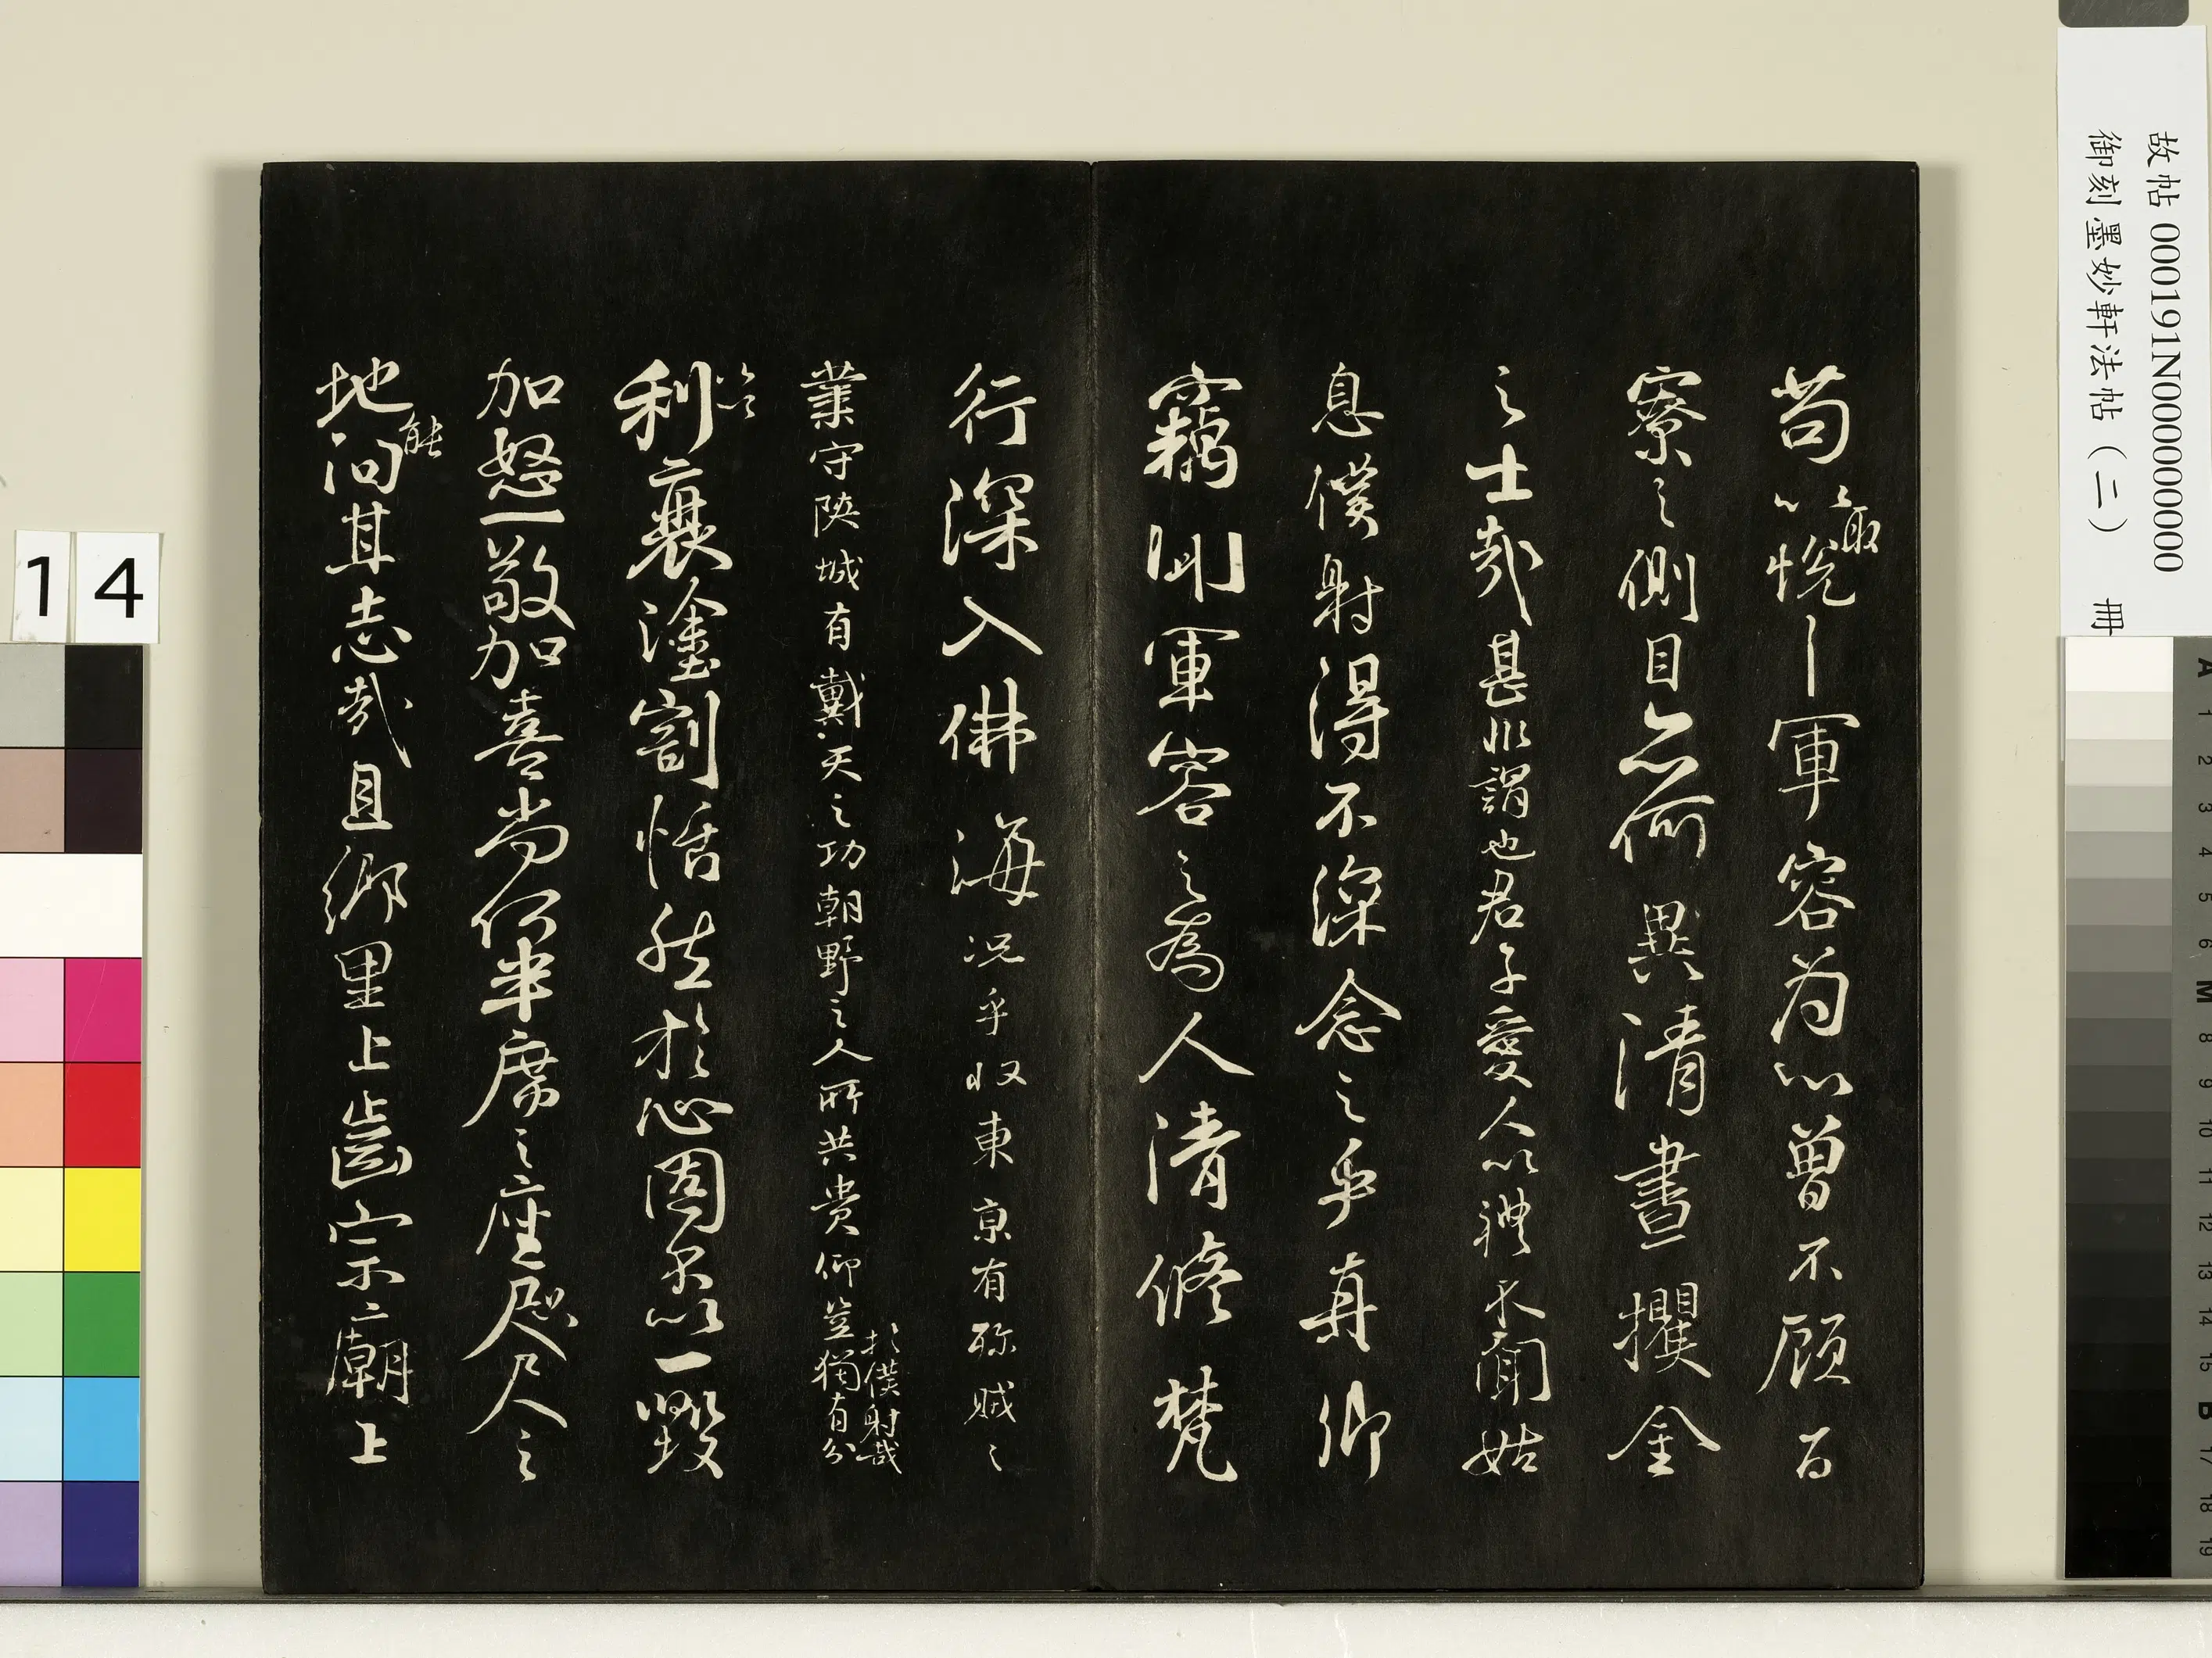 故帖 000191N000000000
御刻墨妙軒法帖(二) 冊
苟以取悅軍容为心曾不顾百
寮之側目亦何異清晝攫金
之士哉甚非謂也君子愛人以禮不聞姑
息僕射得不深念之乎真卿
竊聞軍容之為人清修梵
行深入佛海況乎收東京有殄賊之
業守陝城有戴天之功朝野之人所共贵仰豈獨有分
於僕射哉
加以利衰塗割恬然於心固不以一毀
加怒一敬加喜尚何半席之座咫尺之
地能汩其志哉且鄉里上齒宗廟上
14
A 1 2 3 4 5 6 M 8 9 10 11 12 13 14 15 B 17 18 19